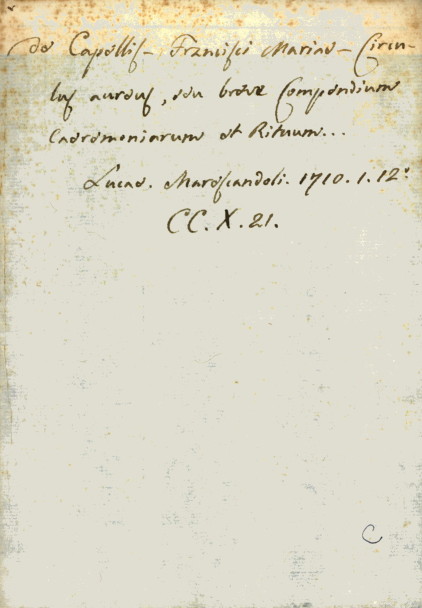 de Capellis - Francisci Mariae - Circu-
lus aureus, seu breve Compendium
Caeremoniarum et Rituum...
Lucae. Marescandoli. 1710. 1. 12.°
CC. X. 21.
C